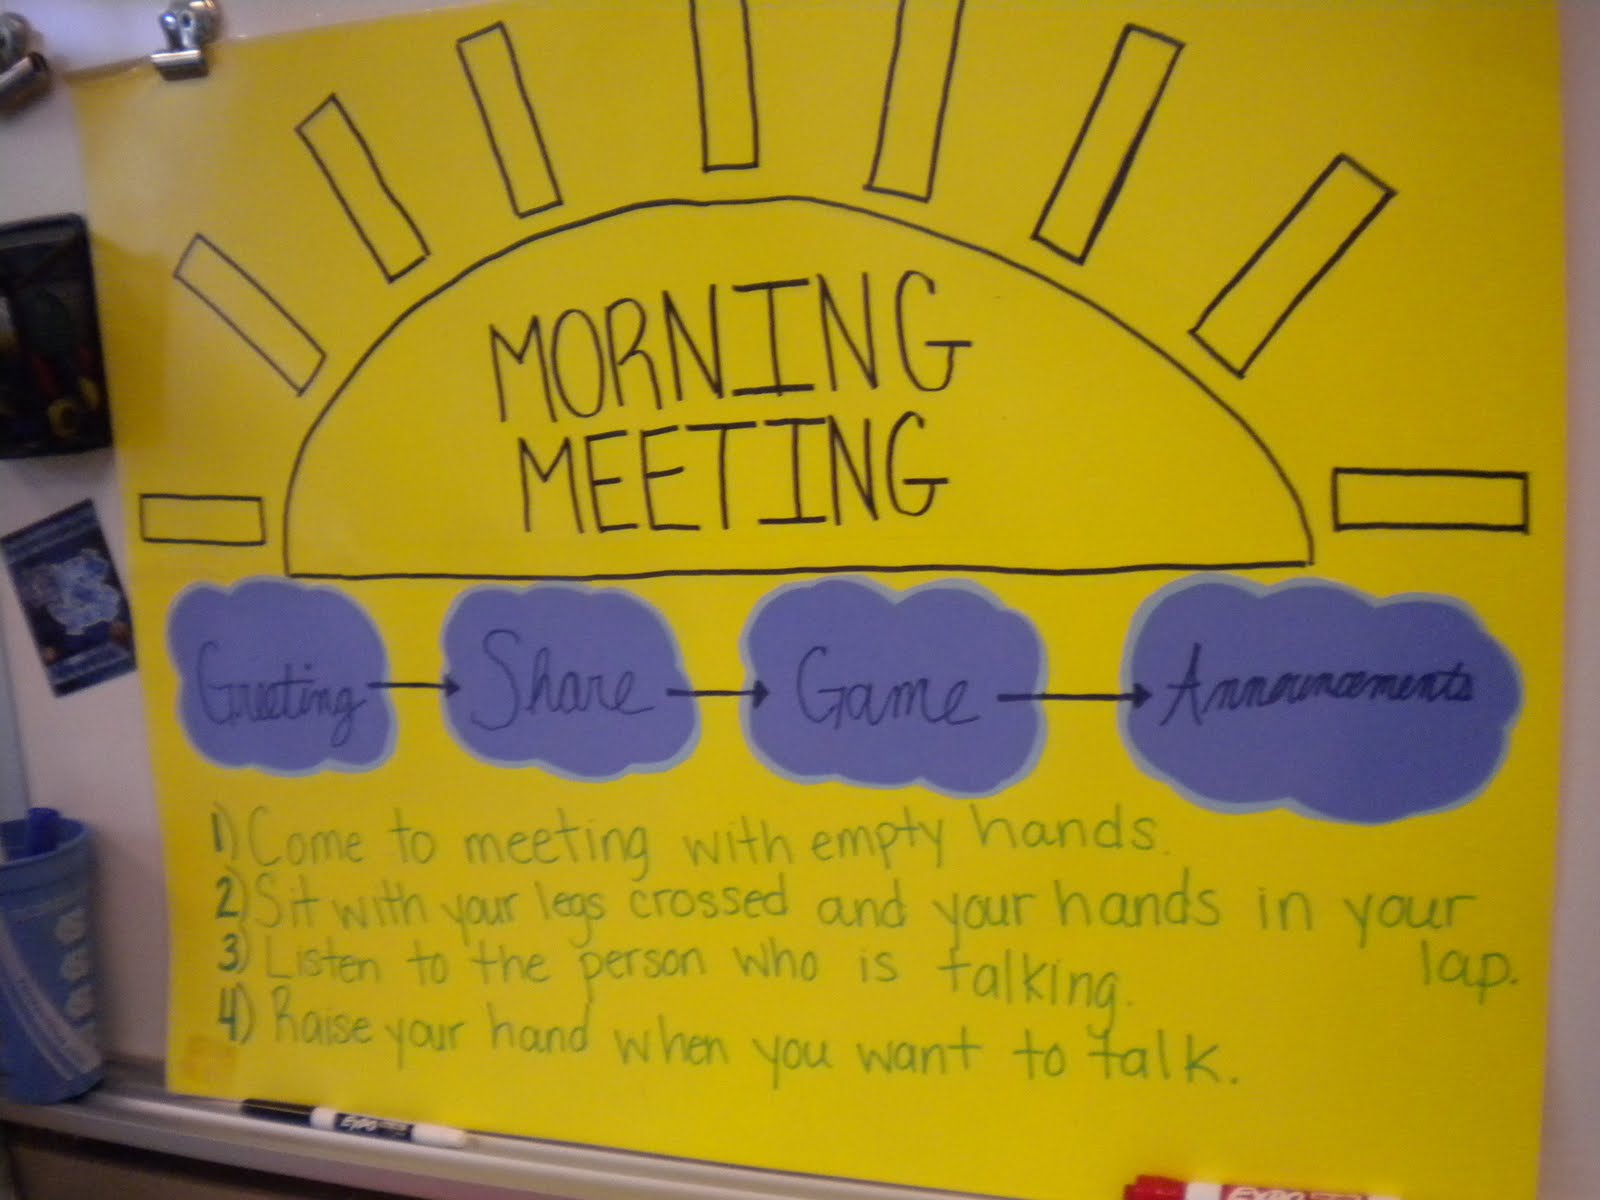 MORNING
MEETING
Greeting Share Game Announcements
1) Come to meeting with empty hands.
2) Sit with your legs crossed and your hands in your
lap.
3) Listen to the person who is talking.
4) Raise your hand when you want to talk.
EXPO
EXPO